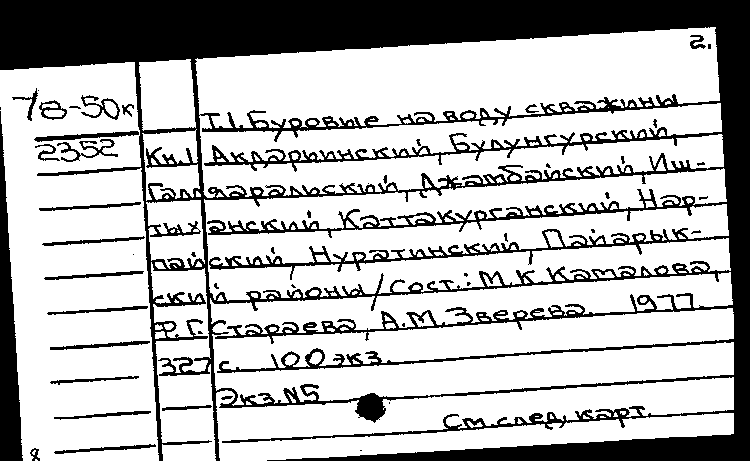 2.
78-50к
Т.1. Буровые на воду скважины
2352 Кн.1 Акдарьинский, Булунгурский,
Галляаральский, Джамбайский, Иш-
тыханский, Каттакурганский, Нар-
пайский, Нуратинский, Пайарык-
ский районы / Сост.: М.К. Камалова,
Ф.Г. Стараева, А.М. Зверева. 1977.
327 с. 100 экз.
Экз. N5
См. след. карт.
8